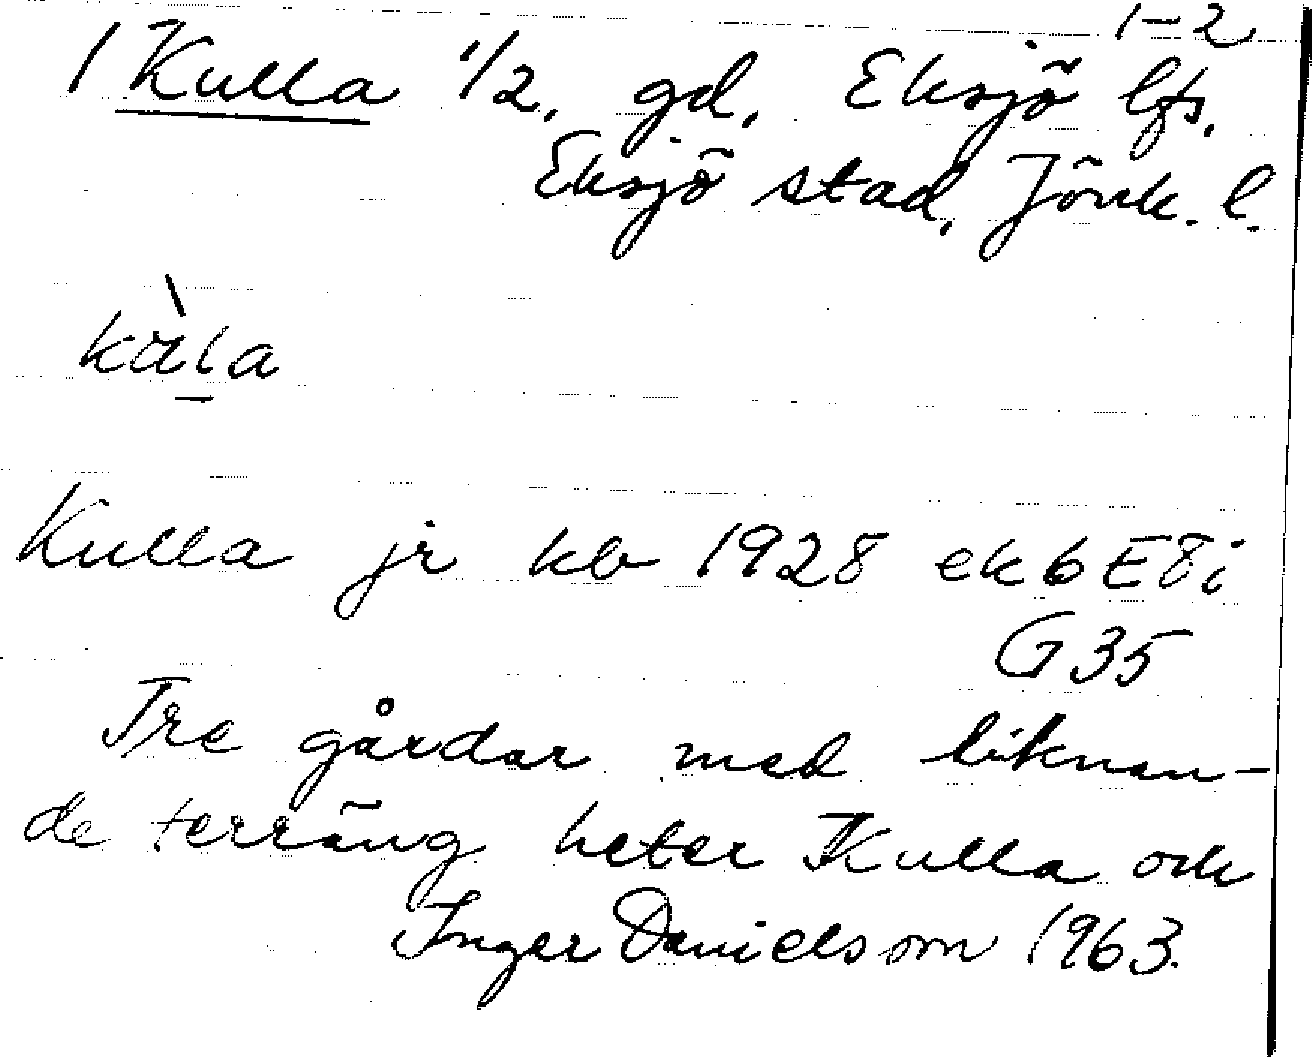 1-2
1 Kulla 1/2, gd, Eksjö lfs,
Eksjö stad, Jönk. l.
kàla
Kulla jr kb 1928 ekb E8i
G35
Tre gårdar med liknan-
de terräng heter Kulla och
Inger Danielsson 1963.